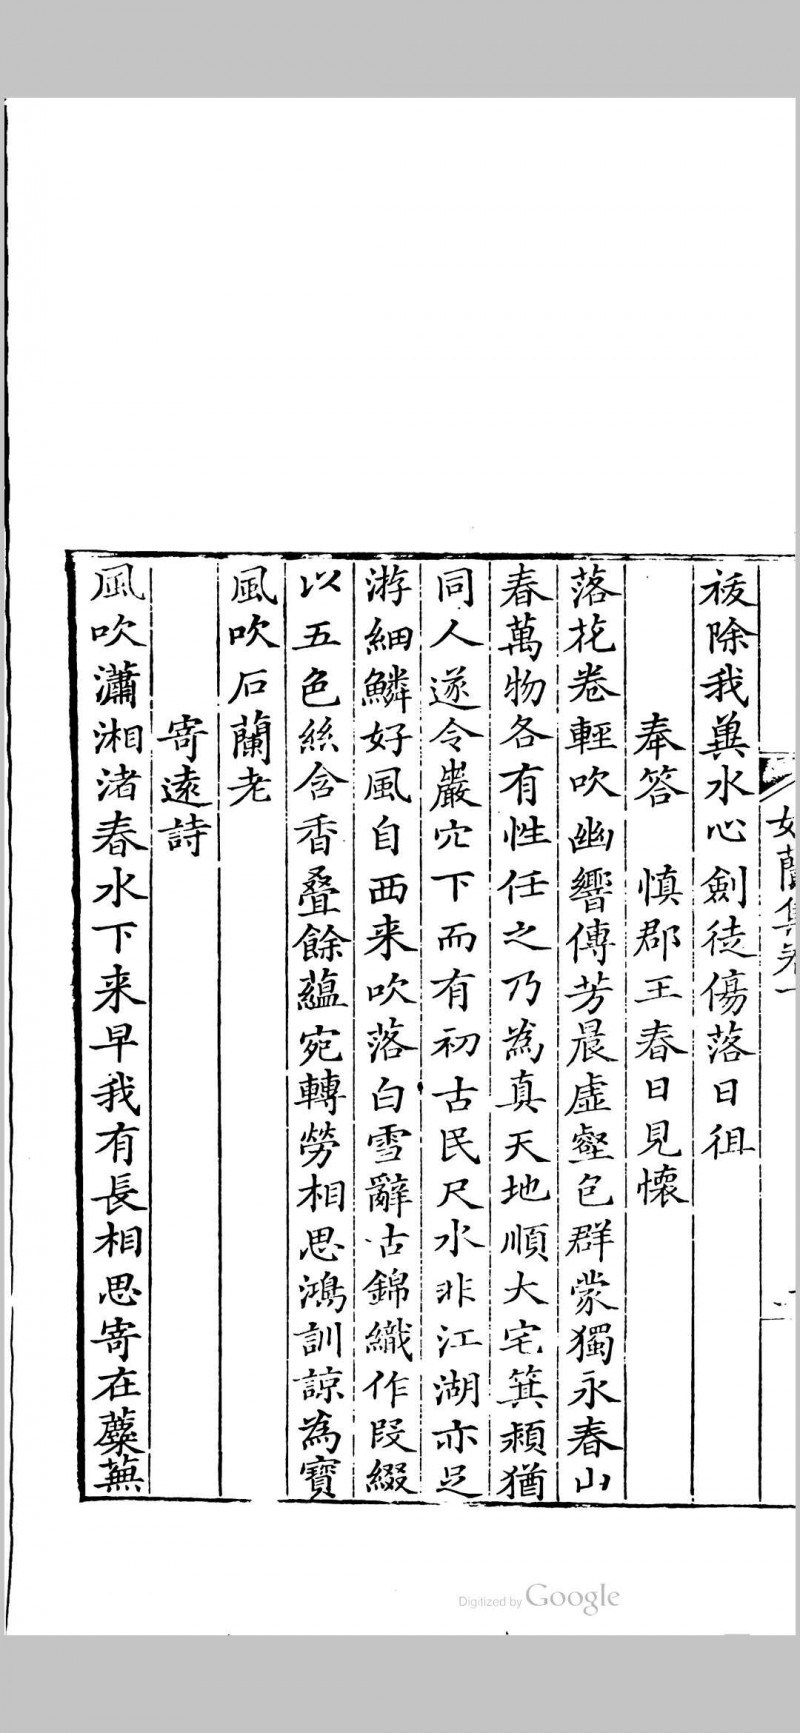 祓除我異水心劍徒傷落日徂
奉答　慎郡王春日見懷
落花卷輕吹幽響傳芳晨虛壑包群蒙獨永春山
春萬物各有性任之乃為真天地順大宅箕潁猶
同人遂令巖穴下而有初古民尺水非江湖亦足
游細鱗好風自西来吹落白雪辭古錦織作段綴
以五色絲含香疊餘藴宛轉勞相思鴻訓諒為寶
風吹石蘭老
寄遠詩
風吹瀟湘渚春水下来早我有長相思寄在蘪蕪
蘭集卷一
Digitized by Google